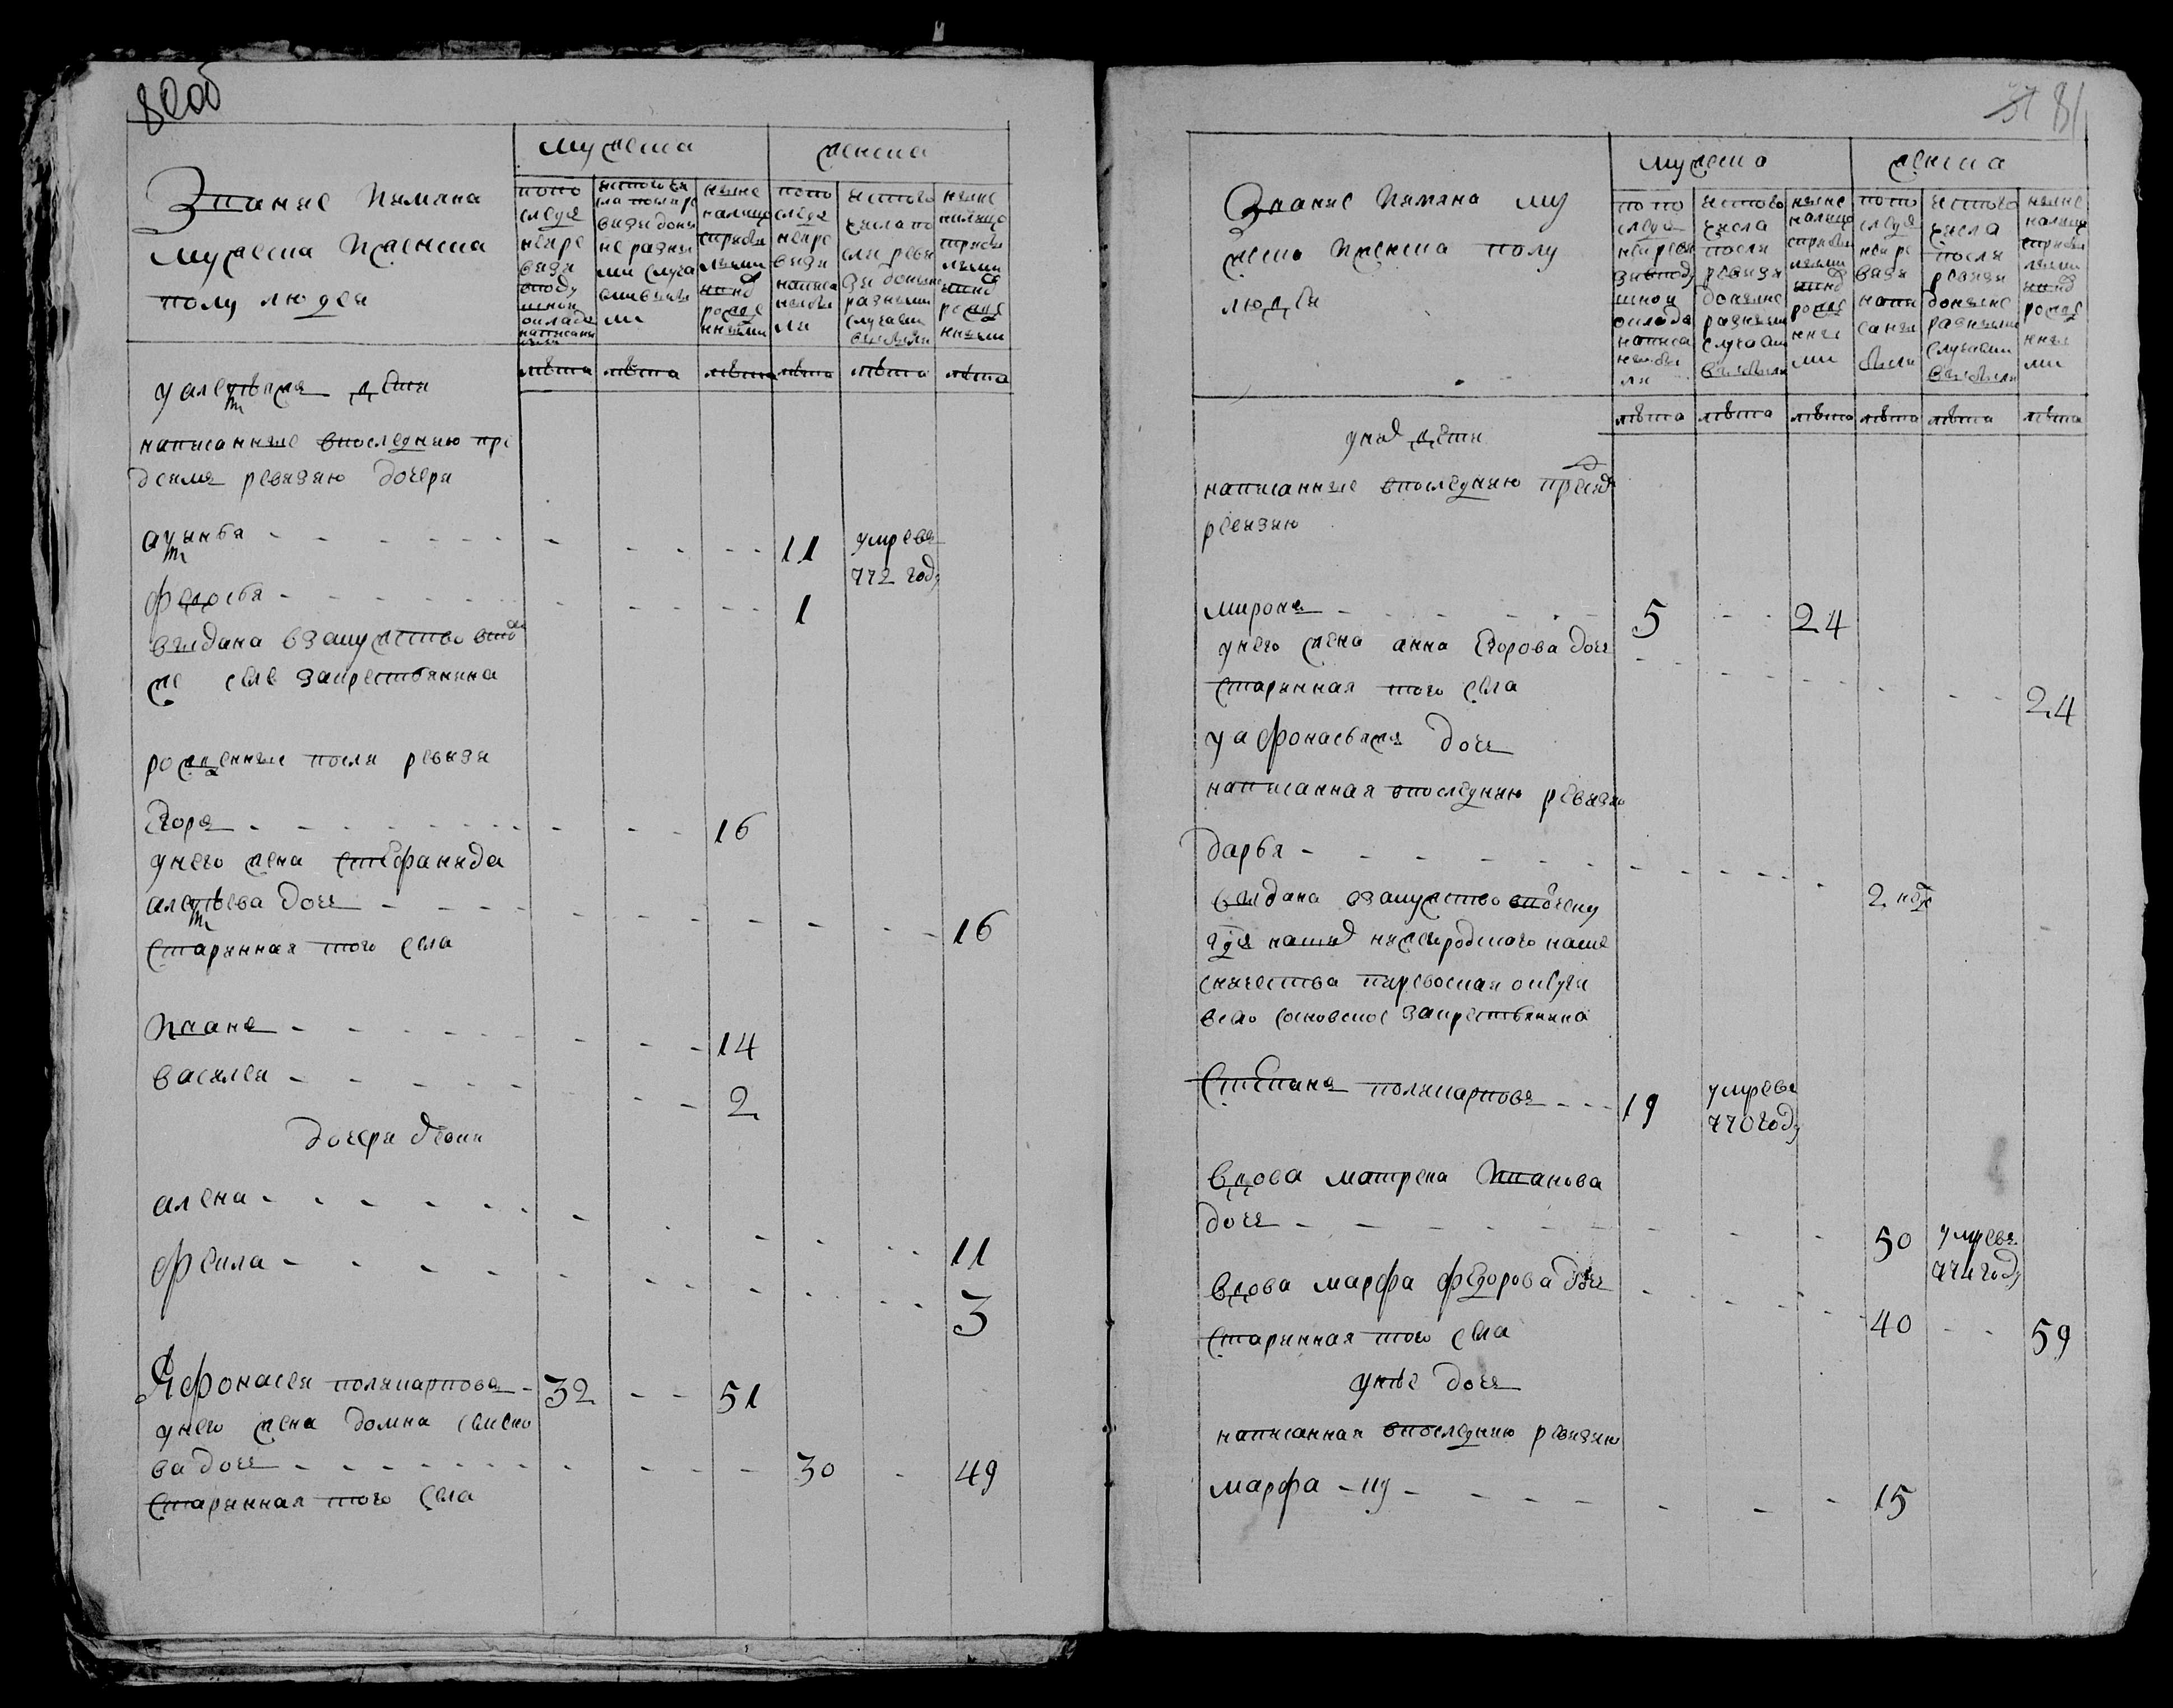 80об
Звание и имяна
мужеска и женска
полу людей
мужеска
женска
по по
следн
ней ре
визи
в поду
шной
оклад
написаны
ис того чи
сла после ре
визи до ны
не разны
ми случа
еми выбы
ли
ныне
на лицо
с прибы
лыми
и внов
рожде
нными
по по
следн
ней ре
визи
написа
ны бы
ли
ис того
числа по
сли реви
зи до ныне
разными
случаеми
выбыли
ныне
на лицо
с прибы
лыми
и внов
рожде
нными
лета лета лета лета лета лета
у алетвея дети
написанные в последнюю пре
д сим ревизию дочери
11 умре в
772 году
федосья 1
выдана в замужество в том
же селе за крестьянина
рожденные после ревизи
Егоръ 16
у него жена стефанида
дочь 16
старинная того села
Иванъ 14
василей 2
дочери девки
алена 11
фекла 3
Афонасей поликарповъ 32 51
у него жена домна семено
ва дочь 30 49
старинная того села
37 81
Звание и имяна му
жеска и женска полу
людей
мужеска
женска
по по
следн
ней реви
зи в поду
шной
оклад
написа
ны бы
ли
ис того
числа
посли
ревизи
до ныне
разными
случаеми
выбыли
ныне
на лицо
с прибы
лыми
и внов
рожде
нны
ми
по по
следн
ней ре
визи
напи
саны
были
ис того
числа
посли
ревизи
до ныне
разными
случаеми
выбыли
ныне
на лицо
с прибы
лыми
и внов
рожде
нны
ми
лета лета лета лета лета лета
у них дети
написанные в последнюю пред сим
ревизию
миронъ 5 24
у него жена анна Егорова дочь
старинная того села 24
у афонасья дочь
написанная в последнюю ревизию
дарья 2 нед
выдана в замужество
нижегородского наме
сничества
село сосновское за крестьянина
Степанъ поликарповъ 19 умре в
770 году
вдова матрена Иванова
дочь 50 умре в
774 году
вдова марфа федорова дочь
старинная того села 40 59
у ние дочь
написанная в последнюю ревизию
марфа 15